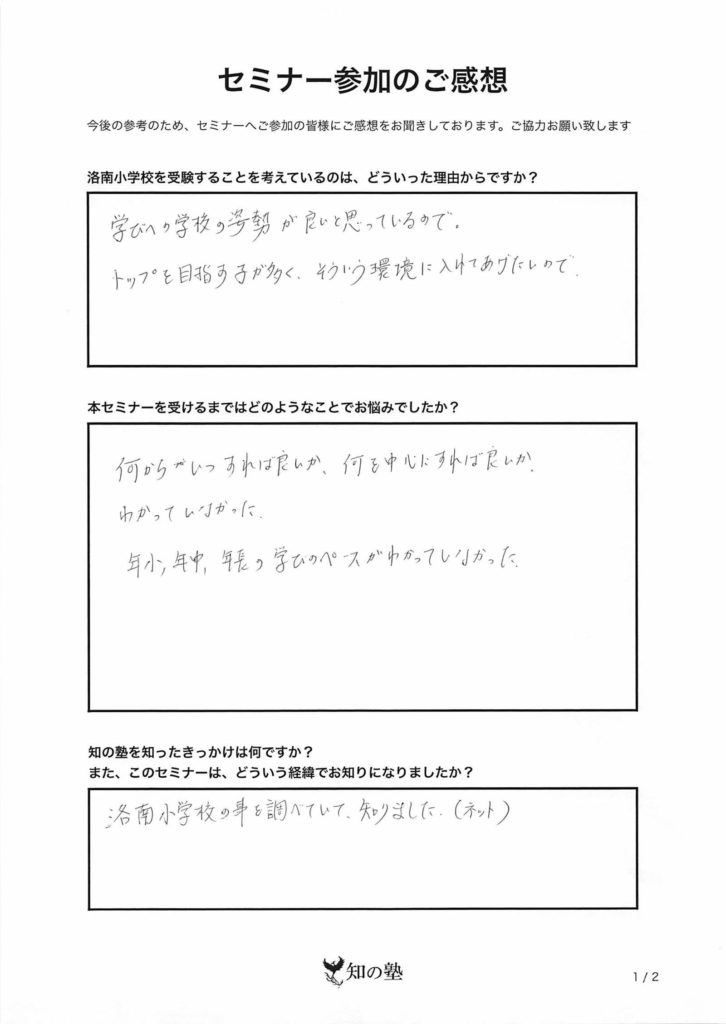 セミナー参加のご感想
今後の参考のため、セミナーへご参加の皆様にご感想をお聞きしております。ご協力お願い致します
洛南小学校を受験することを考えているのは、どういった理由からですか？
学びへの学校の姿勢が良いと思っているので。
トップを目指す子が多く、そういう環境に入れてあげたいので、
本セミナーを受けるまではどのようなことでお悩みでしたか？
何からすれば良いか、何を中心にすれば良いか、
わかっていなかった。
年小,年中,年長の学びのペースがわかっていなかった。
知の塾を知ったきっかけは何ですか？
また、このセミナーは、どういう経緯でお知りになりましたか？
洛南小学校の事を調べていて、知りました。(ネット)
知の塾
1 / 2